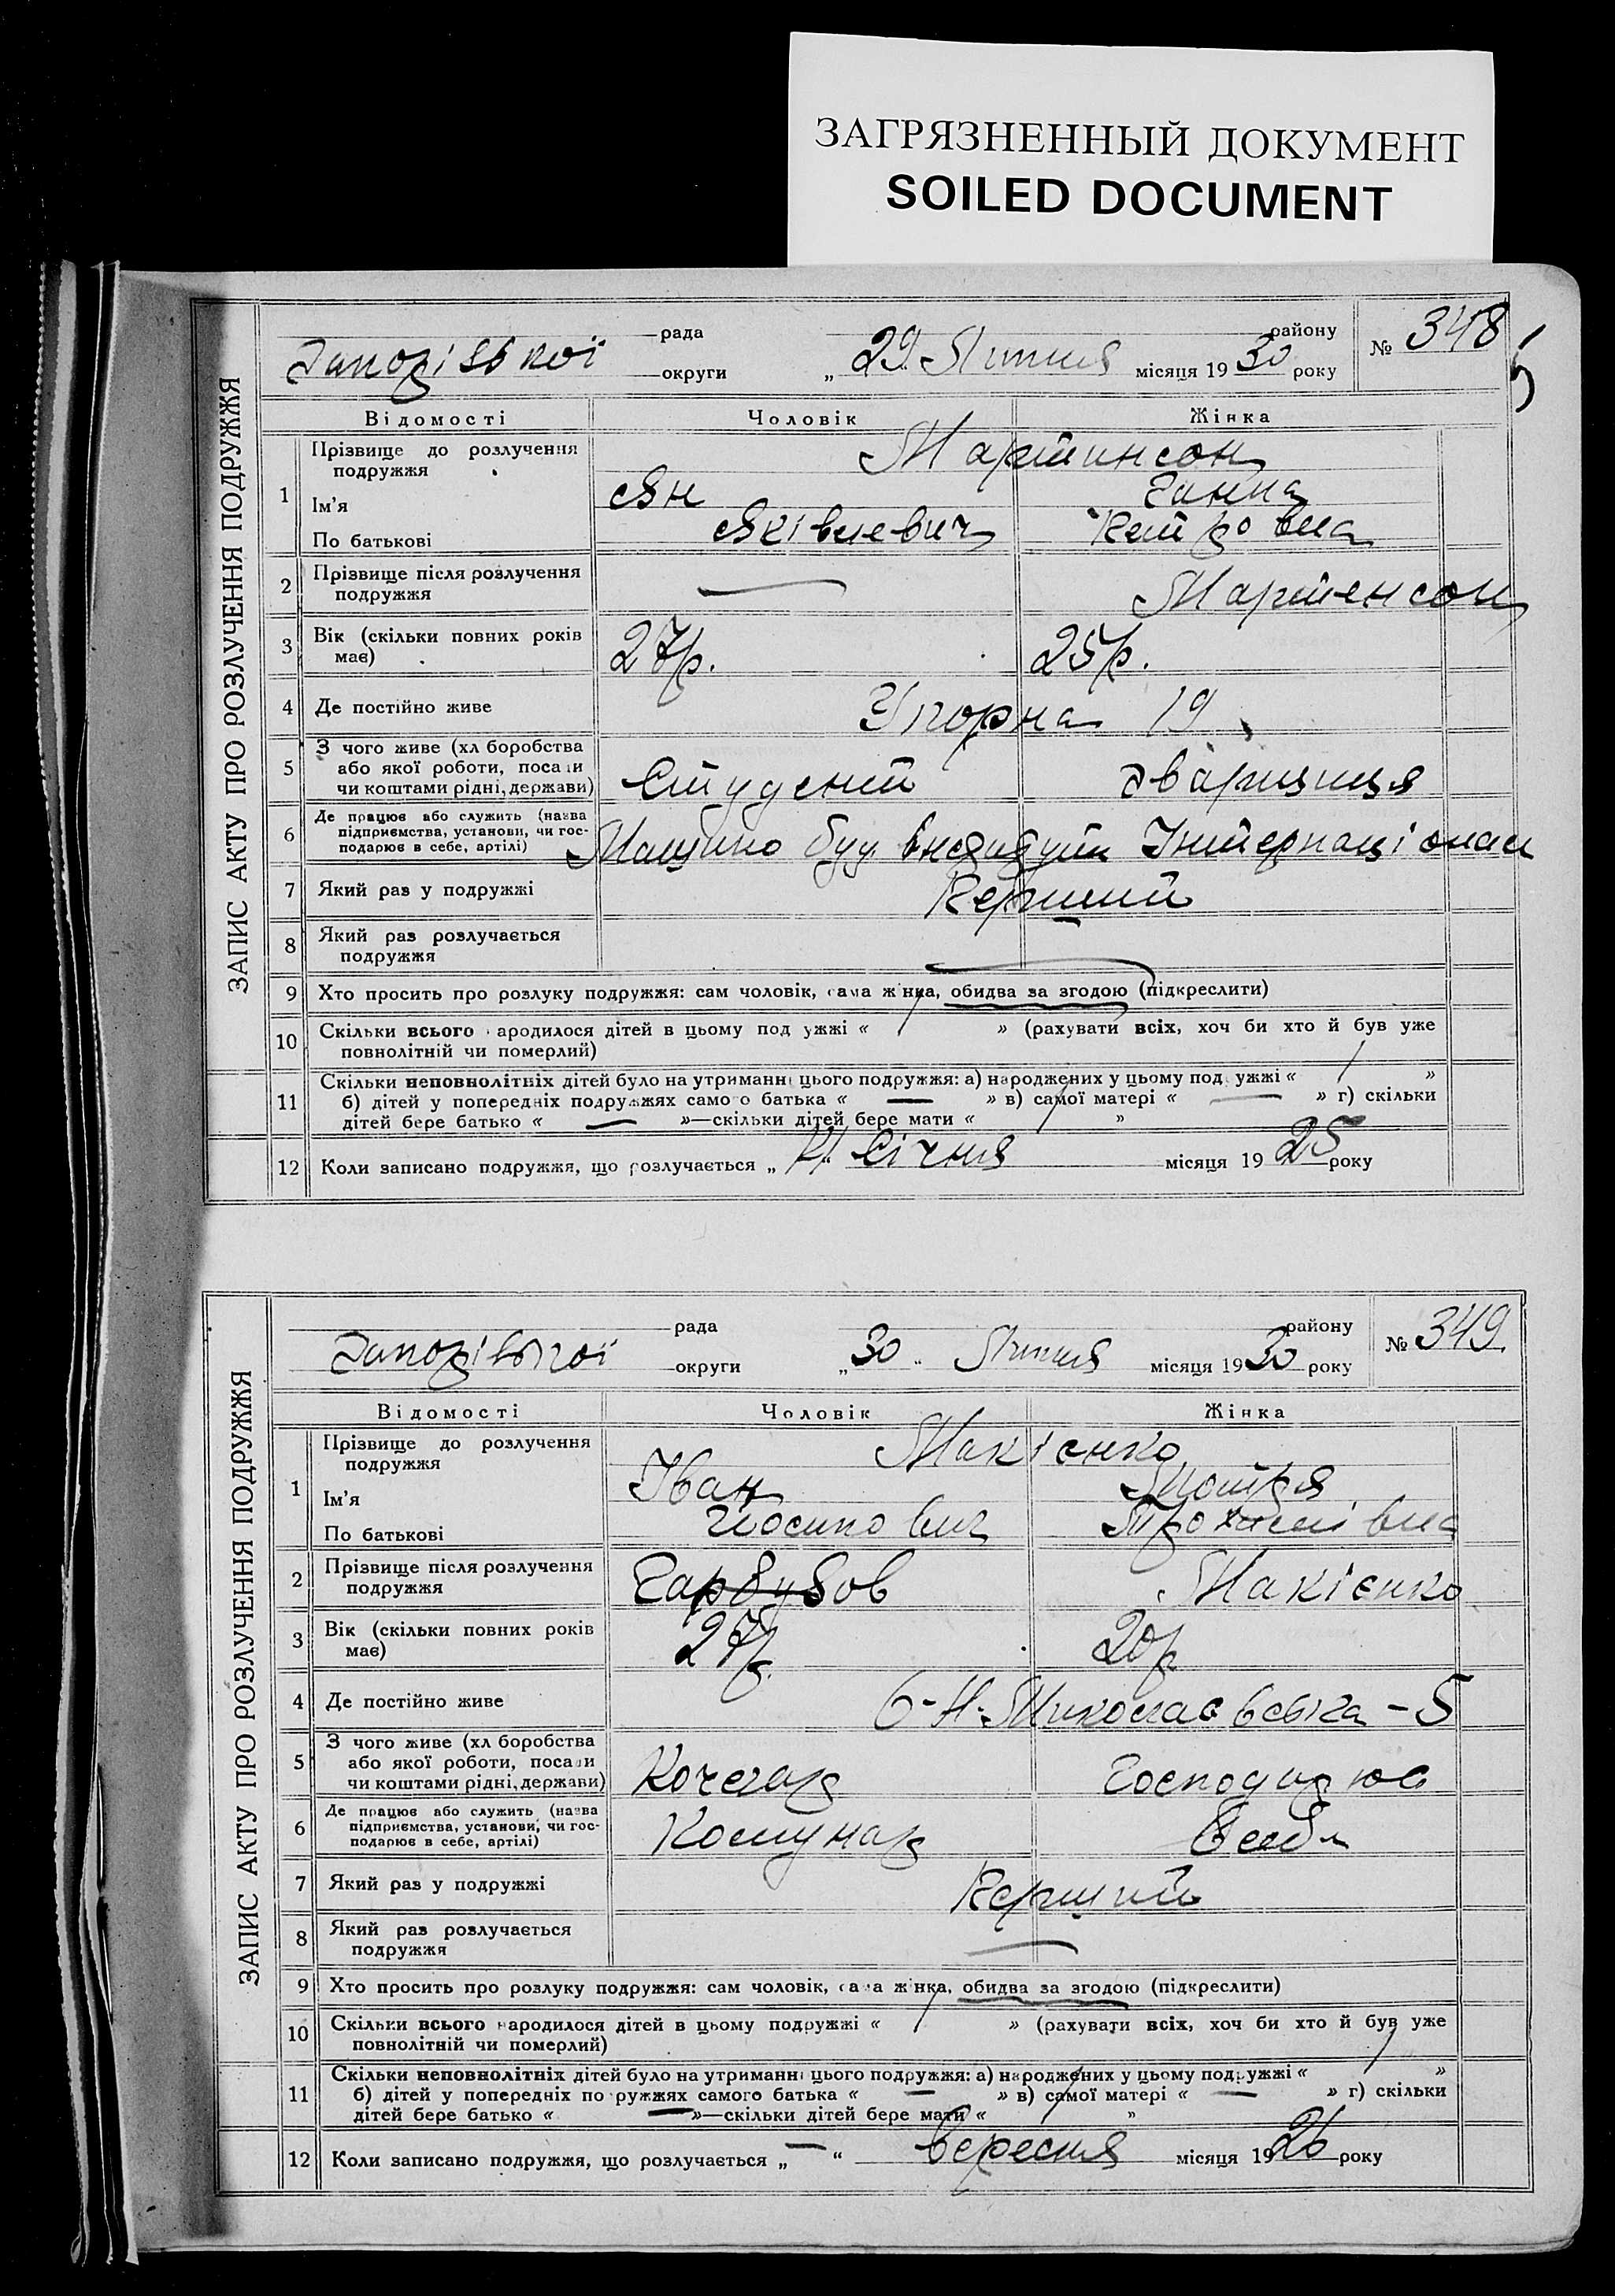 ЗАГРЯЗНЕННЫЙ ДОКУМЕНТ
SOILED DOCUMENT
ЗАПИС АКТУ ПРО РОЗЛУЧЕННЯ ПОДРУЖЖЯ
рада району № 348
Запорізької округи „29 Липня місяця 1930 року
Відомості Чоловік Жінка
1 Прізвище до розлучення подружжя Мартинсон
Ім'я Ян Ганна
По батькові Яківлевич Петровна
2 Прізвище після розлучення подружжя — Мартенсон
3 Вік (скільки повних років має) 27р. 25р.
4 Де постійно живе 19
5 З чого живе (хл боробства
або якої роботи, посади
чи коштами рідні, держави) Студент
6 Де працює або служить (назва
підприємства, установи, чи гос-
подарює в себе, артілі) Машино буд Інтернаціонал
7 Який раз у подружжі Перший
8 Який раз розлучається
подружжя —
9 Хто просить про розлуку подружжя: сам чоловік, сама жінка, обидва за згодою (підкреслити)
10 Скільки всього народилося дітей в цьому подружжі « 1 » (рахувати всіх, хоч би хто й був уже
повнолітній чи померлий)
11 Скільки неповнолітніх дітей було на утриманні цього подружжя: а) народжених у цьому подружжі « 1 »
б) дітей у попередніх подружжях самого батька « — » в) самої матері « — » г) скільки
дітей бере батько « — »—скільки дітей бере мати « 1 »
12 Коли записано подружжя, що розлучається „ Січня місяця 1925 року
ЗАПИС АКТУ ПРО РОЗЛУЧЕННЯ ПОДРУЖЖЯ
рада району № 349.
Запорізької округи „30“ Липня місяця 1930 року
Відомості Чоловік Жінка
1 Прізвище до розлучення подружжя Макієнко
Ім'я Іван Мотря
По батькові Йосипович
2 Прізвище після розлучення подружжя Гарбузов Макієнко
3 Вік (скільки повних років має) 27р. 20р
4 Де постійно живе 6-Н-Миколаєвська-5
5 З чого живе (хл боробства
або якої роботи, посади
чи коштами рідні, держави) Кочегар Господарює
6 Де працює або служить (назва
підприємства, установи, чи гос-
подарює в себе, артілі) Комунар В себе
7 Який раз у подружжі Перший
8 Який раз розлучається
подружжя —
9 Хто просить про розлуку подружжя: сам чоловік, сама жінка, обидва за згодою (підкреслити)
10 Скільки всього народилося дітей в цьому подружжі « 1 » (рахувати всіх, хоч би хто й був уже
повнолітній чи померлий)
11 Скільки неповнолітніх дітей було на утриманні цього подружжя: а) народжених у цьому подружжі « 1 »
б) дітей у попередніх подружжях самого батька « — » в) самої матері « — » г) скільки
дітей бере батько « — »—скільки дітей бере мати « 1 »
12 Коли записано подружжя, що розлучається „—“ вересня місяця 1926 року